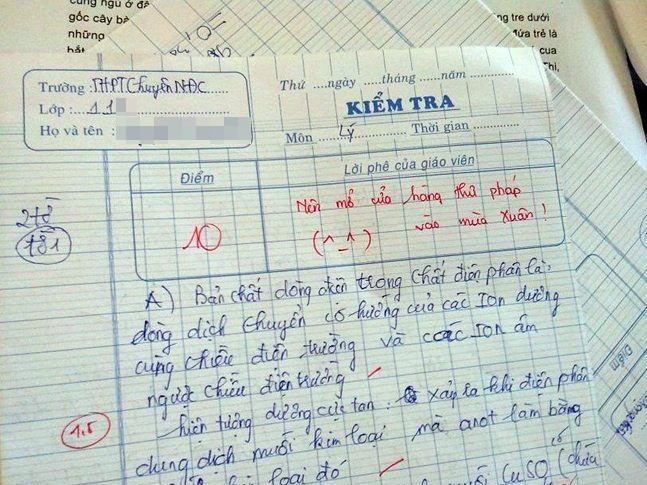 cung ngủ ở đâ
gốc cây bà
những
hắt
ng tre dưới
đứa trẻ là
cua
Thi,
Trường : THPT Chuyên NĐC
Lớp : 11
Họ và tên :
Thứ ....ngày .....tháng ......năm
KIỂM TRA
Môn Lý Thời gian
Điểm
Lời phê của giáo viên
10
Nên mở cửa hàng thư pháp
(^_^) vào mùa xuân !
2tề
tề1
A) Bản chất dòng điện trong chất điện phân là:
dòng dịch chuyển có hướng của các Ion dương
cùng chiều điện trường và các Ion âm
ngược chiều điện trường
1.5
hiện tượng dương cực tan : xảy ra khi điện phân
dung dịch muối kim loại mà anot làm bằng
loại đó
muối CuSO
có chứa
Điểm